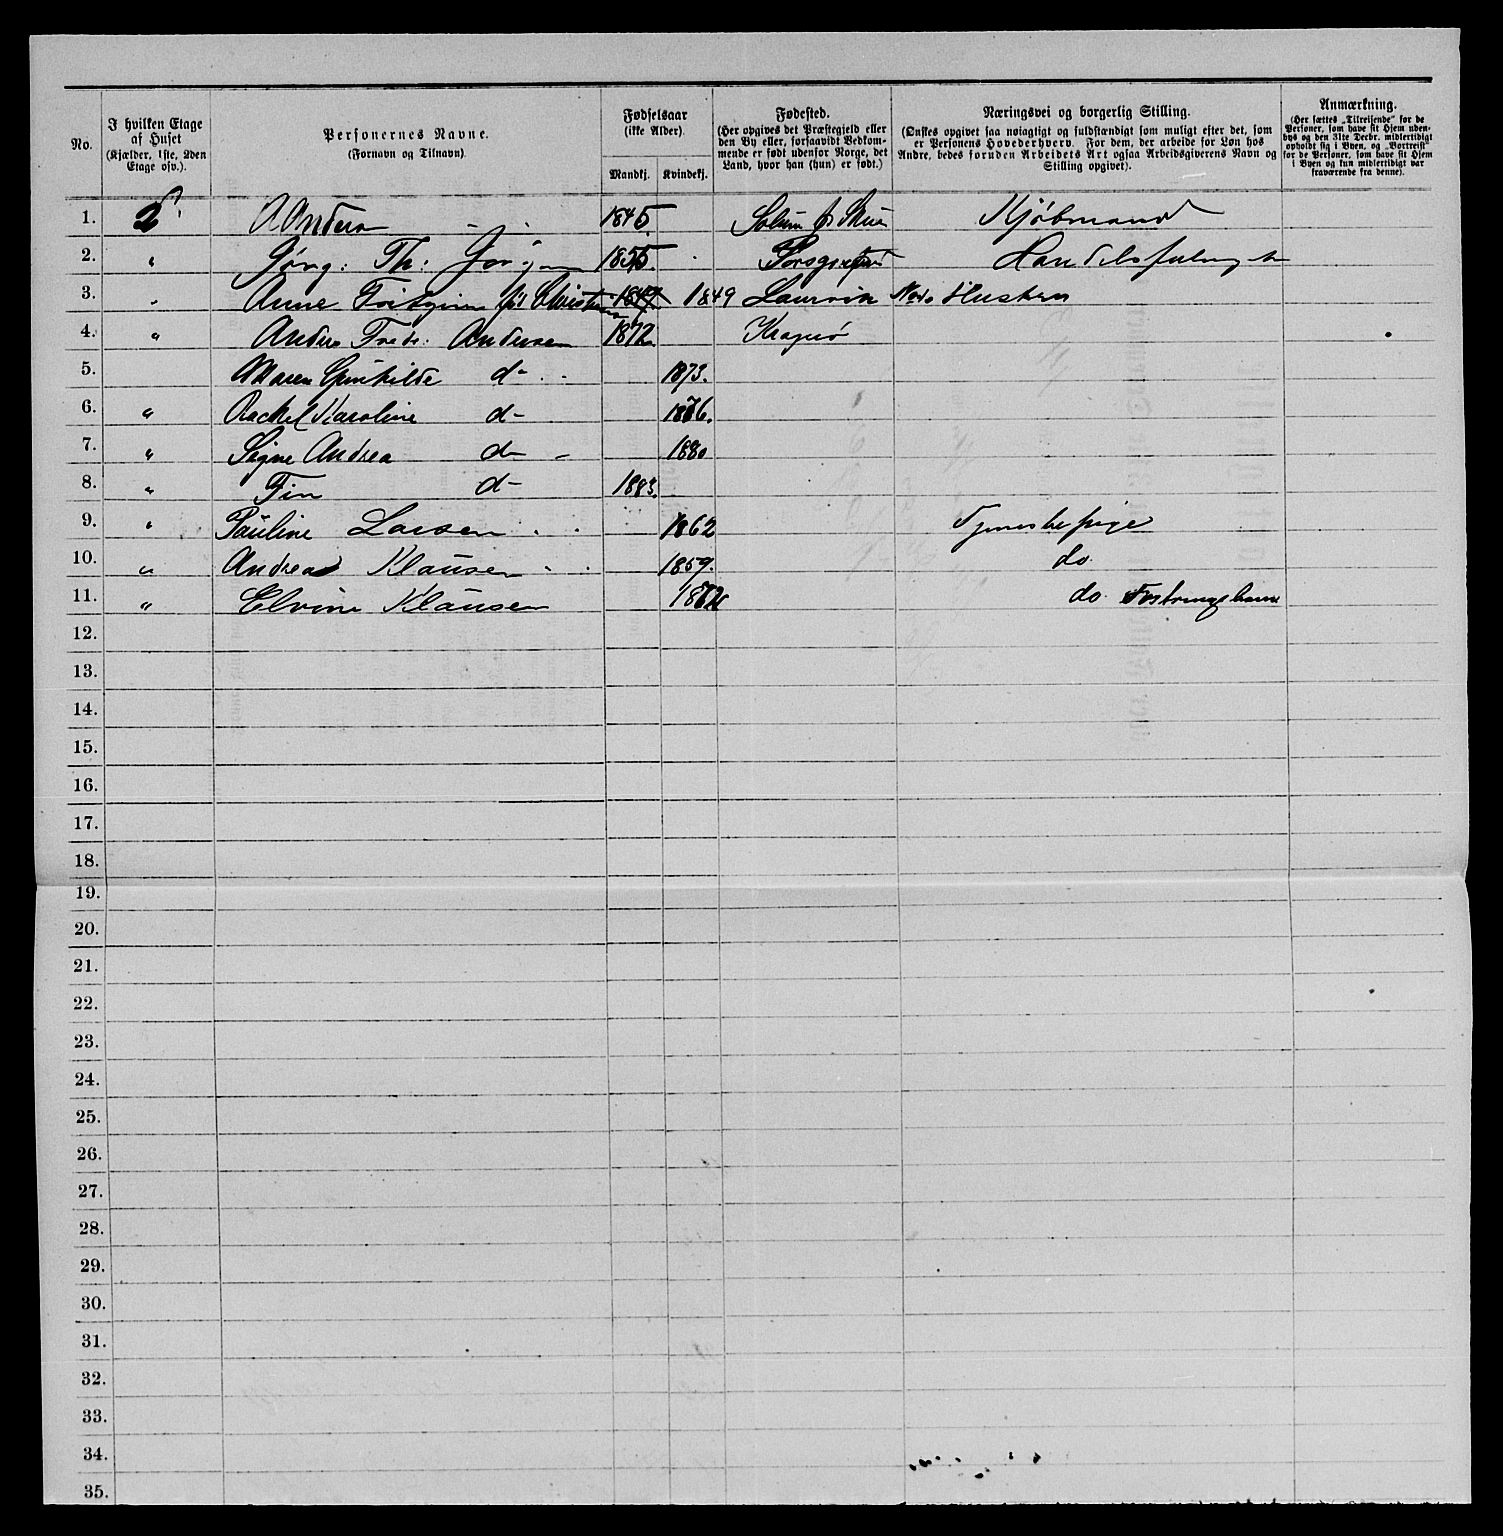 No.
I hvilken Etage af Huset (Kjælder, 1ste, 2den Etage osv.).
Personernes Navne. (Fornavn og Tilnavn).
Fødselsaar (ikke Alder). Mandkj. Kvindekj.
Fødested. (Her opgives det Præstegjeld eller den By eller, forsaavidt Vedkommende er født udenfor Norge, det Land, hvor han (hun) er født.)
Næringsvei og borgerlig Stilling. (Ønskes opgivet saa nøiagtigt og fuldstændigt som muligt efter det, som er Personens Hovederhverv. For dem, der arbeide for Løn hos Andre, bedes foruden Arbeidets Art ogsaa Arbeidsgiverens Navn og Stilling opgivet).
Anmærkning. (Her sættes „Tilreisende“ for de Personer, som have sit Hjem udenbys og den 31te Decbr. midlertidigt opholdt sig i Byen, og „Bortreist“ for de Personer, som have sit Hjem i Byen og kun midlertidigt var fraværende fra denne).
1. 2 1845. Kjøbmand
2. " Jørg: Th: 1855.
3. " Anne født 1849 1849 Laurvik Hustru
4. " Anders Fredr: Andersen 1872. Kragerø
5. Maren Gunhilde d- 1873.
6. " Rachel Karoline d- 1876.
7. " Signe Andrea d- 1880
8. " Fin d- 1883.
9. " Pauline Larsen 1862 Tjenestepige
10. " Andrea Klausen 1859. do
11. " Elvine Klausen do
12.
13.
14.
15.
16.
17.
18.
19.
20.
21.
22.
23.
24.
25.
26.
27.
28.
29.
30.
31.
32.
33.
34.
35.